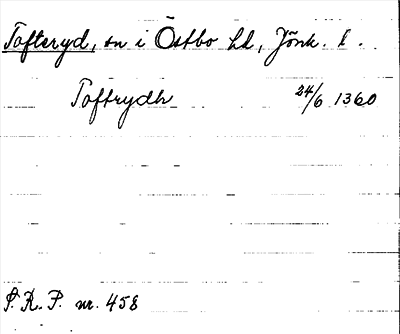 Tofteryd, sn i Östbo hd, Jönk. l.
Toftrydh 24/6 1360
S. R. P. nr. 458